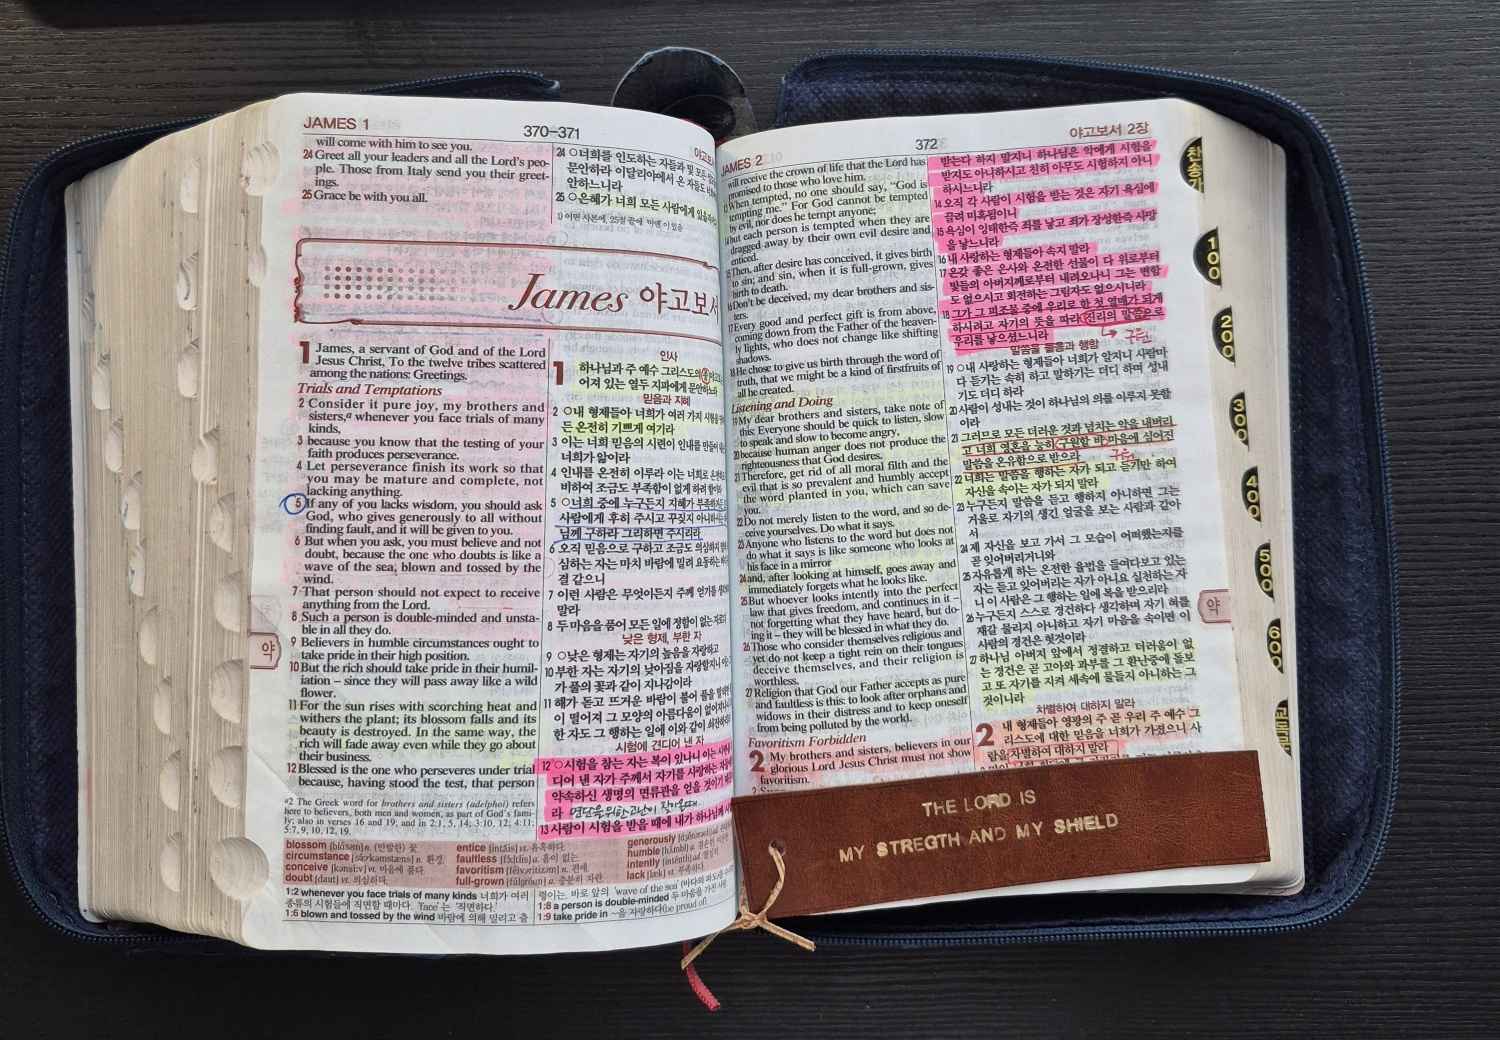 JAMES 1
370–371
will come with him to see you.
24 Greet all your leaders and all the Lord's peo-
ple. Those from Italy send you their greet-
ings.
25 Grace be with you all.
24 ○너희를 인도하는 자들과 및 모든
문안하라 이달리야에서 온 자들도
안하느니라
25 ○은혜가 너희 모든 사람에게 있을
1) 어떤 사본에, 25절 끝에 '아멘'이 있음
James 야고보서
1 James, a servant of God and of the Lord
Jesus Christ, To the twelve tribes scattered
among the nations: Greetings.
Trials and Temptations
2 Consider it pure joy, my brothers and
sisters,a whenever you face trials of many
kinds,
3 because you know that the testing of your
faith produces perseverance.
4 Let perseverance finish its work so that
you may be mature and complete, not
lacking anything.
5 If any of you lacks wisdom, you should ask
God, who gives generously to all without
finding fault, and it will be given to you.
6 But when you ask, you must believe and not
doubt, because the one who doubts is like a
wave of the sea, blown and tossed by the
wind.
7 That person should not expect to receive
anything from the Lord.
8 Such a person is double-minded and unsta-
ble in all they do.
9 Believers in humble circumstances ought to
take pride in their high position.
10 But the rich should take pride in their humil-
iation – since they will pass away like a wild
flower.
11 For the sun rises with scorching heat and
withers the plant; its blossom falls and its
beauty is destroyed. In the same way, the
rich will fade away even while they go about
their business.
12 Blessed is the one who perseveres under trial
because, having stood the test, that person
인사
1 하나님과 주 예수 그리스도의 종
어져 있는 열두 지파에게 문안하노라
믿음과 지혜
2 ○내 형제들아 너희가 여러 가지 시험을
든 온전히 기쁘게 여기라
3 이는 너희 믿음의 시련이 인내를 만들어
너희가 앎이라
4 인내를 온전히 이루라 이는 너희로 온전하고
비하여 조금도 부족함이 없게 하려 함이라
5 ○너희 중에 누구든지 지혜가 부족하거든
사람에게 후히 주시고 꾸짖지 아니하시는
님께 구하라 그리하면 주시리라
6 오직 믿음으로 구하고 조금도 의심하지 말라
심하는 자는 마치 바람에 밀려 요동하는
결 같으니
7 이런 사람은 무엇이든지 주께 얻기를
말라
8 두 마음을 품어 모든 일에 정함이 없는 자로다
낮은 형제, 부한 자
9 ○낮은 형제는 자기의 높음을 자랑하고
10 부한 자는 자기의 낮아짐을 자랑할지니
가 풀의 꽃과 같이 지나감이라
11 해가 돋고 뜨거운 바람이 불어 풀을
이 떨어져 그 모양의 아름다움이 없어지나니
한 자도 그 행하는 일에 이와 같이 쇠잔하리라
시험에 견디어 낸 자
12 ○시험을 참는 자는 복이 있나니 이는
디어 낸 자가 주께서 자기를 사랑하는
약속하신 생명의 면류관을 얻을 것이기
라
13 사람이 시험을 받을 때에 내가 하나님께
약
a2 The Greek word for brothers and sisters (adelphoi) refers
here to believers, both men and women, as part of God's fami-
ly; also in verses 16 and 19; and in 2:1, 5, 14; 3:10, 12; 4:11;
5:7, 9, 10, 12, 19.
blossom n. (만발한) 꽃
circumstance n. 환경
conceive v. 마음에 품다
doubt vt. 의심하다
entice vt. 유혹하다
faultless a. 흠이 없는
favoritism n. 편애
full-grown a. 충분히 자란
generously
humble
intently
lack vt. 부족하다
1:2 whenever you face trials of many kinds 너희가 여러
종류의 시험들에 직면할 때마다. 'face'는 '직면하다'
1:6 blown and tossed by the wind 바람에 의해 밀리고 출
렁이는. 바로 앞의 'wave of the sea'
1:8 a person is double-minded 두 마음을 가진 사람
1:9 take pride in ~을 자랑하다(be proud of)
JAMES 2
372
야고보서 2장
will receive the crown of life that the Lord has
promised to those who love him.
13 When tempted, no one should say, “God is
tempting me.” For God cannot be tempted
by evil, nor does he tempt anyone;
14 but each person is tempted when they are
dragged away by their own evil desire and
enticed.
15 Then, after desire has conceived, it gives birth
to sin; and sin, when it is full-grown, gives
birth to death.
16 Don't be deceived, my dear brothers and sis-
ters.
17 Every good and perfect gift is from above,
coming down from the Father of the heaven-
ly lights, who does not change like shifting
shadows.
18 He chose to give us birth through the word of
truth, that we might be a kind of firstfruits of
all he created.
Listening and Doing
19 My dear brothers and sisters, take note of
this: Everyone should be quick to listen, slow
to speak and slow to become angry,
20 because human anger does not produce the
righteousness that God desires.
21 Therefore, get rid of all moral filth and the
evil that is so prevalent and humbly accept
the word planted in you, which can save
you.
22 Do not merely listen to the word, and so de-
ceive yourselves. Do what it says.
23 Anyone who listens to the word but does not
do what it says is like someone who looks at
his face in a mirror
24 and, after looking at himself, goes away and
immediately forgets what he looks like.
25 But whoever looks intently into the perfect
law that gives freedom, and continues in it –
not forgetting what they have heard, but do-
ing it – they will be blessed in what they do.
26 Those who consider themselves religious and
yet do not keep a tight rein on their tongues
deceive themselves, and their religion is
worthless.
27 Religion that God our Father accepts as pure
and faultless is this: to look after orphans and
widows in their distress and to keep oneself
from being polluted by the world.
Favoritism Forbidden
2 My brothers and sisters, believers in our
glorious Lord Jesus Christ must not show
favoritism.
받는다 하지 말지니 하나님은 악에게 시험을
받지도 아니하시고 친히 아무도 시험하지 아니
하시느니라
14 오직 각 사람이 시험을 받는 것은 자기 욕심에
끌려 미혹됨이니
15 욕심이 잉태한즉 죄를 낳고 죄가 장성한즉 사망
을 낳느니라
16 내 사랑하는 형제들아 속지 말라
17 온갖 좋은 은사와 온전한 선물이 다 위로부터
빛들의 아버지께로부터 내려오나니 그는 변함
도 없으시고 회전하는 그림자도 없으시니라
18 그가 그 피조물 중에 우리로 한 첫 열매가 되게
하시려고 자기의 뜻을 따라 진리의 말씀으로
우리를 낳으셨느니라
구원
말씀을 들음과 행함
19 ○내 사랑하는 형제들아 너희가 알지니 사람마
다 듣기는 속히 하고 말하기는 더디 하며 성내
기도 더디 하라
20 사람이 성내는 것이 하나님의 의를 이루지 못함
이라
21 그러므로 모든 더러운 것과 넘치는 악을 내버리
고 너희 영혼을 능히 구원할 바 마음에 심어진
말씀을 온유함으로 받으라
구원
22 너희는 말씀을 행하는 자가 되고 듣기만 하여
자신을 속이는 자가 되지 말라
23 누구든지 말씀을 듣고 행하지 아니하면 그는
거울로 자기의 생긴 얼굴을 보는 사람과 같아
서
24 제 자신을 보고 가서 그 모습이 어떠했는지를
곧 잊어버리거니와
25 자유롭게 하는 온전한 율법을 들여다보고 있는
자는 듣고 잊어버리는 자가 아니요 실천하는 자
니 이 사람은 그 행하는 일에 복을 받으리라
26 누구든지 스스로 경건하다 생각하며 자기 혀를
재갈 물리지 아니하고 자기 마음을 속이면 이
사람의 경건은 헛것이라
27 하나님 아버지 앞에서 정결하고 더러움이 없
는 경건은 곧 고아와 과부를 그 환난중에 돌보
고 또 자기를 지켜 세속에 물들지 아니하는 그
것이니라
차별하여 대하지 말라
2 내 형제들아 영광의 주 곧 우리 주 예수 그
리스도에 대한 믿음을 너희가 가졌으니 사
람을 차별하여 대하지 말라
약
찬송가
100
200
300
400
500
600
교독문
THE LORD IS
MY STREGTH AND MY SHIELD